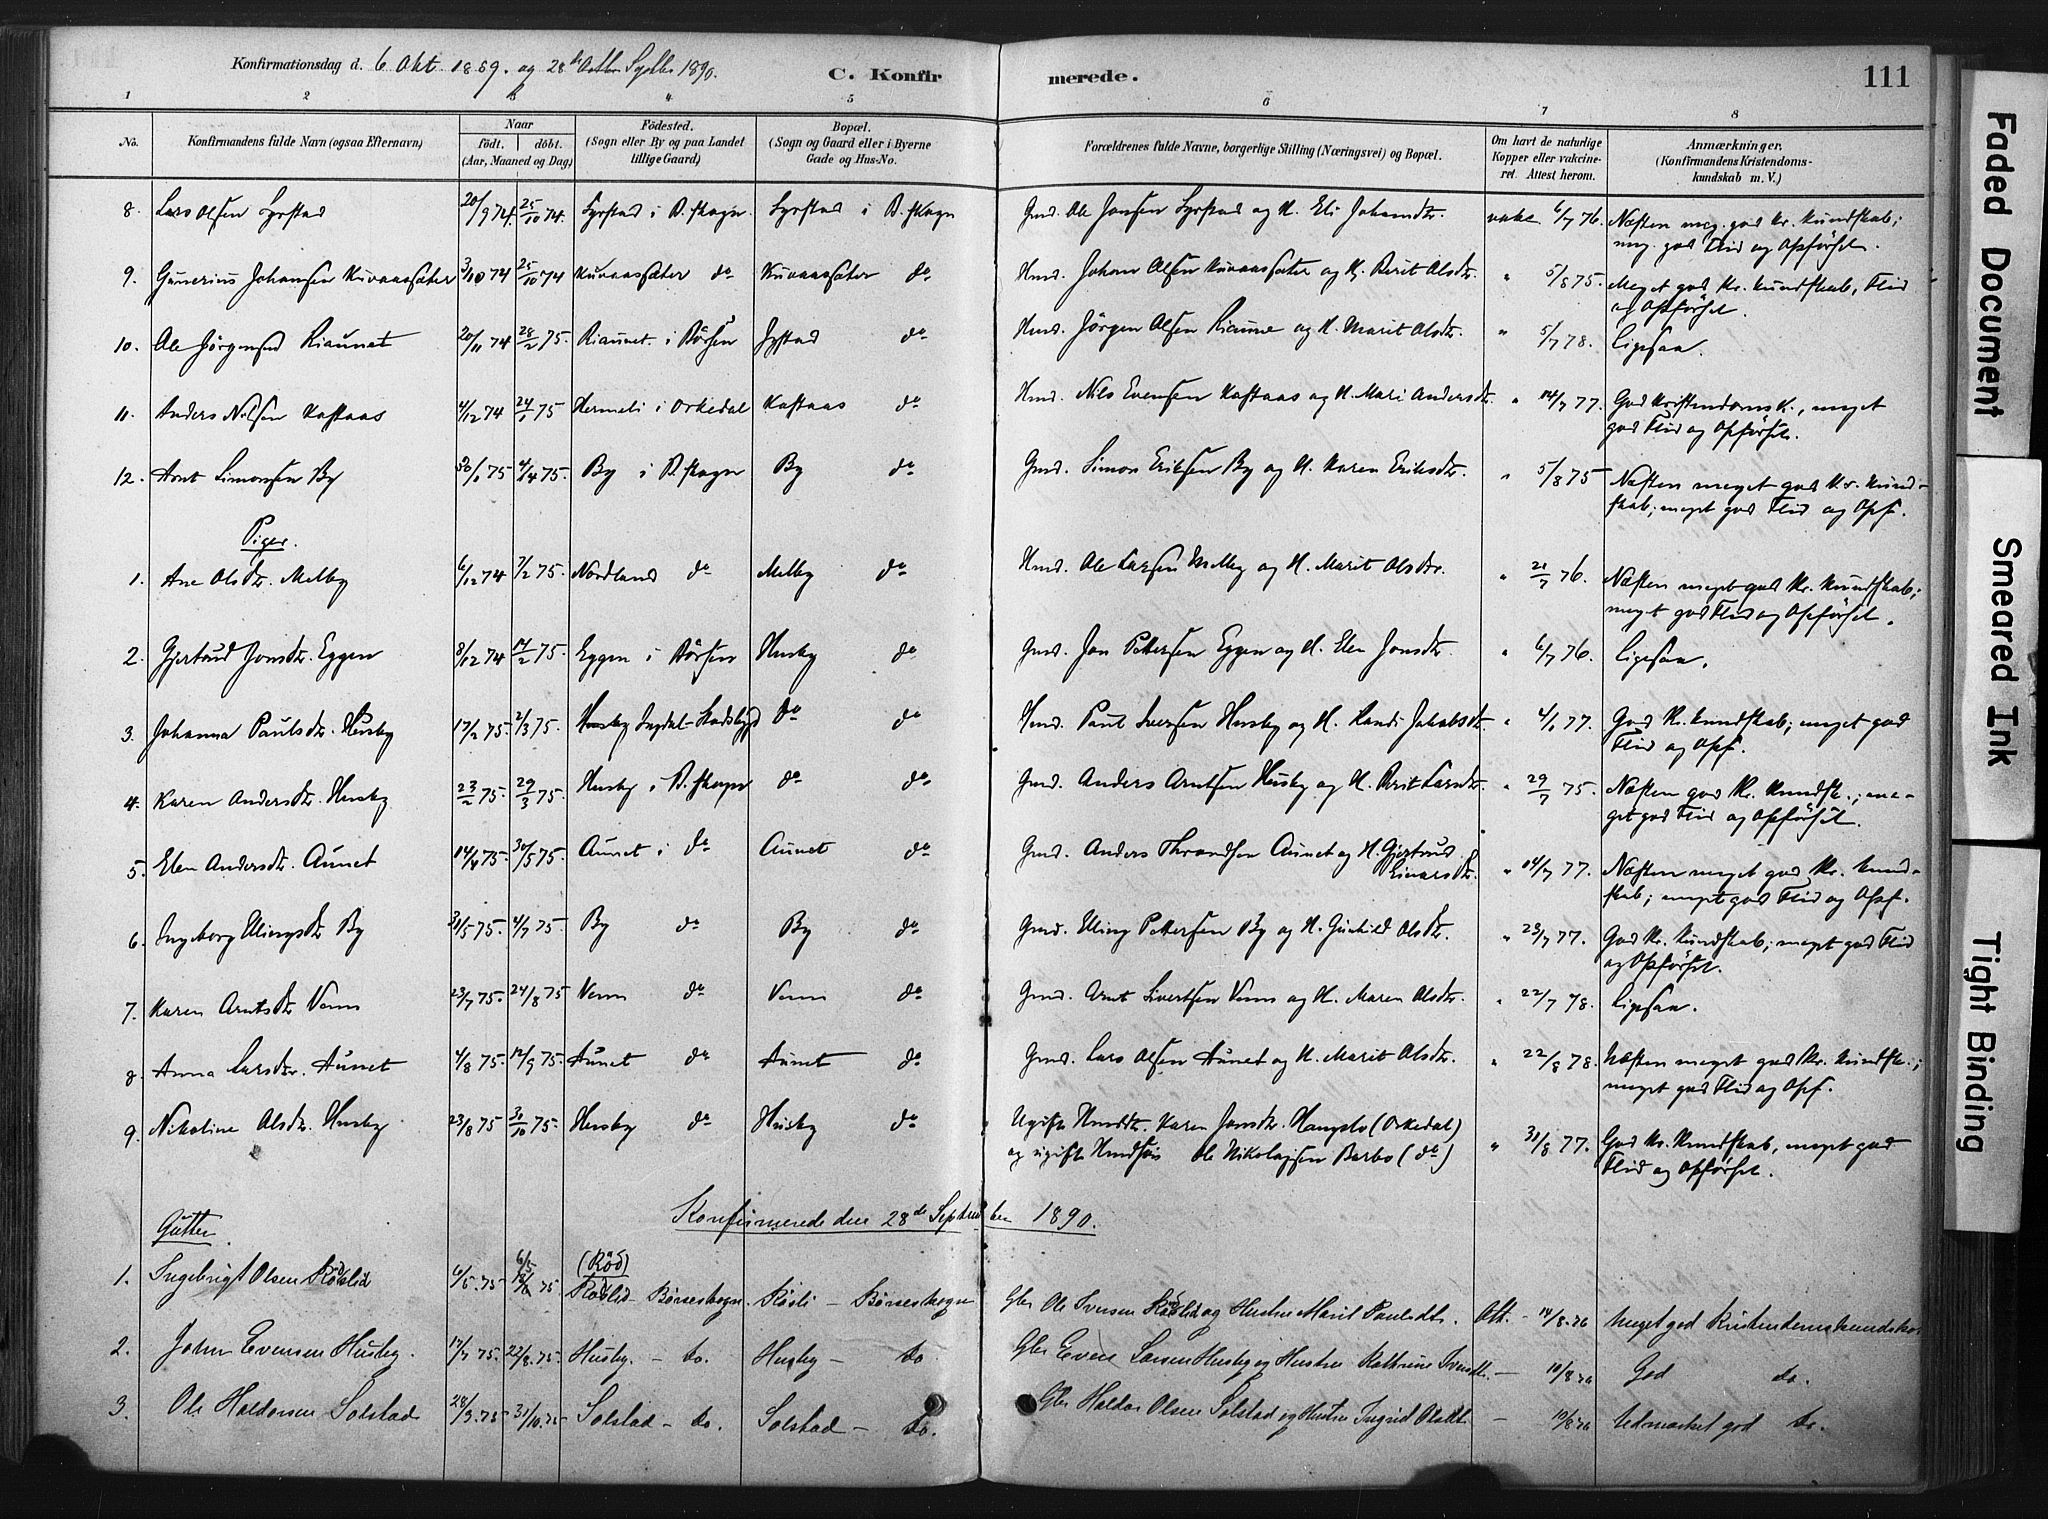 Konfirmationsdag d. 6 Okt. 1889. og 28de Septbr 1890.
C. Konfirmerede.
111
1 2 3 4 5 6 7 8
No. Konfirmandens fulde Navn (ogsaa Efternavn) Naar födt. döbt. (Aar, Maaned og Dag) Födested. (Sogn eller By og paa Landet tillige Gaard) Bopæl. (Sogn og Gaard eller i Byerne Gade og Hus-No. Forældrenes fulde Navne, borgerlige Stilling (Næringsvei) og Bopæl. Om havt de naturlige Kopper eller vakcineret. Attest herom. Anmærkninger. (Konfirmandens Kristendomskundskab m. V.)
8. Lars Olsen Syrstad 20/9 74. 25/10 74. Syrstad i B.skogn. Syrstad i B.skogn Gmd. Ole Jonsen Syrstad og H. Eli Johansdtr. vakc. 6/7 76. Næsten meg. god Kr. kundskab;
meg. god Flid og Opförsel.
9. Gunerius Johansen Kuvaassæter 3/10 74 25/10 74 Kuvaassæter do Kuvaassæter do Hmd. Johan Olsen Kuvaassæter og H. Berit Olsdtr. " 5/8 75. Meget god Kr. kundskab, Flid
og Opförsel.
10. Ole Jörgensen Riaunet 20/11 74 28/2 75. Riaunet i Börsen Jystad do Hmd. Jörgen Olsen Riaune og H. Marit Olsdtr. " 5/7 78. Ligesaa.
11. Anders Nilsen Kastaas 4/12 74 24/1 75 Hermeli i Orkedal Kastaas do Hmd. Nils Evensen Kastaas og H. Mari Andersdtr. " 14/7 77. God Kristendomsk., meget
god Flid og Opförsel.
12. Arnt Simonsen By 30/1 75 4/4 75. By i B.skogn By do Gmd. Simon Eriksen By og H. Karen Eriksdtr. " 5/8 75 Næsten meget god Kr. kund-
skab; meget god Flid og Opf.
Piger.
1. Ane Olsdtr. Melby 6/12 74 7/2 75. Nordland do Melby do Hmd. Ole Larsen Melby og H. Marit Olsdtr. " 21/7 76. Næsten meget god Kr. kundskab;
meget god Flid og Opförsel.
2. Gjertrud Jonsdtr. Eggen 8/12 74 14/2 75. Eggen i Börsen Husby do Gmd. Jon Pettersen Eggen og H. Elen Jonsdtr. " 6/7 76. Ligesaa.
3. Johanna Paulsdtr. Husby 17/2 75. 2/3 75. Husby Ingdal-Stadsbygd do do Hmd. Paul Iversen Husby og H. Randi Jakobsdtr. " 4/6 77. God Kr. kundskab, meget god
Flid og Opf.
4. Karen Andersdtr. Husby 23/2 75. 29/3 75. Husby i B.skogn do do Gmd. Anders Arntsen Husby og H. Berit Larsdtr. " 29/7 75. Næsten god Kr. kundsk.; me-
get god Flid og Opförsel.
5. Elen Andersdtr. Aunet 14/4 75. 30/5 75. Aunet i do Aunet do Gmd. Anders Throndsen Aunet og H. Gjertrud
Einarsdtr. " 14/7 77. Næsten meget god Kr. kund-
skab; meget god Flid og Opf.
6. Ingeborg Elingsdtr By 31/5 75. 4/7 75. By do By do Gmd. Eling Pettersen By og H. Gunhild Olsdtr. " 23/7 77. God Kr. kundskab; meget god Flid
og Opförsel.
7. Karen Arntsdtr Venn 23/7 75. 24/8 75 Venn do Venn do Gmd. Arnt Sivertsen Venn og H. Maren Olsdtr. " 22/7 78. Ligesaa.
8. Anna Larsdtr. Aunet 4/8 75. 12/9 75. Aunet do Aunet do Gmd. Lars Olsen Aunet og H. Marit Olsdtr. " 22/8 78. Næsten meget god Kr. kundsk.;
meget god Flid og Opf.
9. Nikoline Olsdtr. Husby 23/8 75 31/10 75. Husby do Husby do Ugift Hmdtr. Karen Jonsdtr. Hangslo (Orkedal)
og ugift Hmdsön Ole Nikolajsen Barbo (do) " 31/8 77. God Kr. kundskab, meget god
Flid og Opförsel.
Konfirmerede den 28de September 1890.
Gutter
1. Ingebrigt Olsen Rödslid 6/5. 75 6/5 75 (Röd)
Rödslid - Börseskogn. Rösli - Börseskogn Gbr Ole Iversen Röslid og Hustru Marit Paulsdt. Att. - 14/8. 76 Meget god Kristendomskundskab
2. John Evensen Husby. 17/7 75. 22/8. 75. Husby. - do. Husby - do Gbr Even Larsen Husby og Hustru Kathrine Iversdt. - 10/8 76 God do.
3. Ole Haldorsen Solstad 28/9. 75 31/10. 75 Solstad - do. Solstad - do. Gbr Haldor Olsen Solstad og Hustru Ingrid Olsdt - 10/8 76 Udmærket god do.
Faded Document
Smeared Ink
Tight Binding